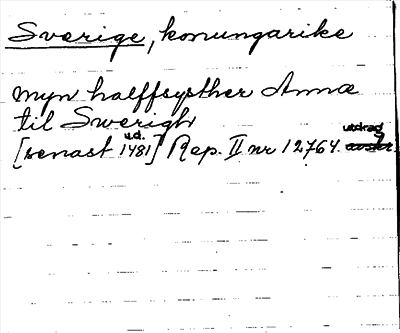 Sverige, konungarike
myn halffsysther Anna
til Swerigh
[senast u.d. 1481] Rep. II nr 12764. utdrag